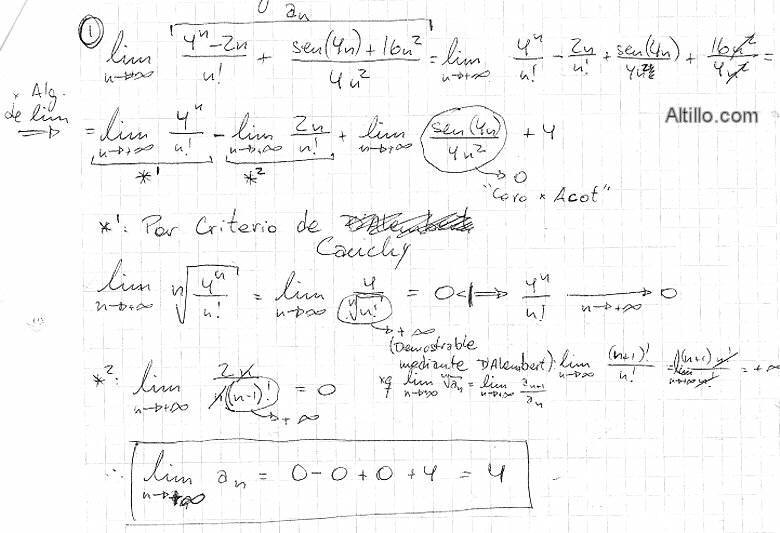 aₙ
① lim n→+∞ (4ⁿ-2n)/n! + (sen(4n)+16n²)/4n² = lim n→+∞ 4ⁿ/n! - 2n/n! + sen(4n)/4n² + 16n²/4n² =
Altillo.com
* Alg. de lim ⇒ = lim n→+∞ 4ⁿ/n! - lim n→+∞ 2n/n! + lim n→+∞ sen(4n)/4n² + 4
*1 *2 → 0
"Cero * Acot"
*1: Por Criterio de
Cauchy
lim n→+∞ ⁿ√(4ⁿ/n!) = lim n→∞ 4/ⁿ√n! = 0 < 1 ⇒ 4ⁿ/n! → n→+∞ 0
→ +∞
(Demostrable
mediante D'Alembert): lim n→∞ (n+1)!/n! = lim n→+∞ (n+1) n!/n! = +∞
xq lim n→∞ ⁿ√aₙ = lim n→+∞ aₙ₊₁/aₙ
*2: lim n→+∞ 2n/n(n-1)! = 0
→ +∞
∴ lim n→+∞ aₙ = 0 - 0 + 0 + 4 = 4